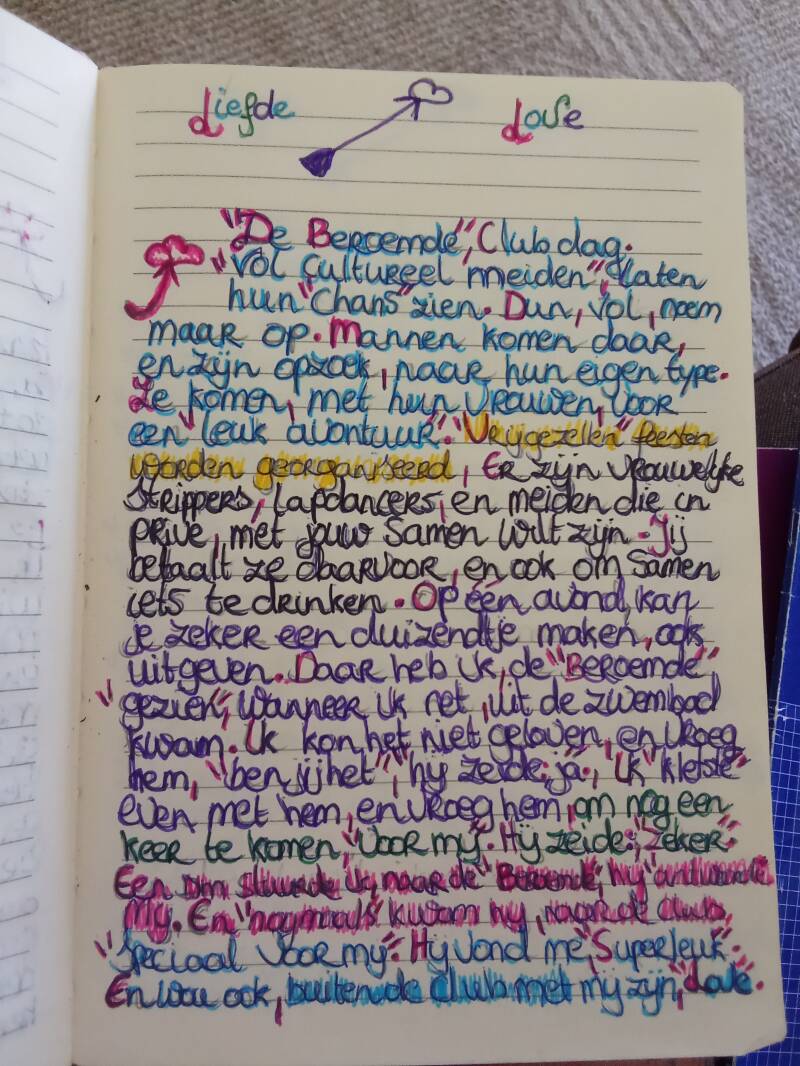 Liefde Love
"De Beroemde", Club dag.
"Vol Cultureel meiden", laten
hun "Chans" zien. Dun, vol, noem
maar op. Mannen komen daar,
en zijn opzoek, naar hun eigen type.
Ze komen, met hun vrouwen, voor
een "leuk avontuur". "Vrijgezellen" feesten
worden georganiseerd, Er zijn vrouwelijke
strippers, lapdancers, en meiden die in
privé, met jouw samen wilt zijn. Jij
betaalt ze daarvoor, en ook om samen
iets te drinken. Op één avond, kan
je zeker een duizendtje maken, ook
uitgeven. Daar heb ik, de "Beroemde",
"gezien", wanneer ik net, uit de zwembad
kwam. Ik kon het niet geloven, en vroeg
hem, "ben jij het", hij zeide, ja, Ik "kletste"
even met hem, en vroeg hem, om nog een
keer te komen, "voor mij". Hij zeide; "zeker".
Een stuurde ik, naar de "Beroemde", hij
Mij. En "nogmaals" kwam hij, naar de club,
"speciaal voor mij". Hij vond me, "Superleuk".
En wou ook, buiten de Club met mij zijn, "Love".